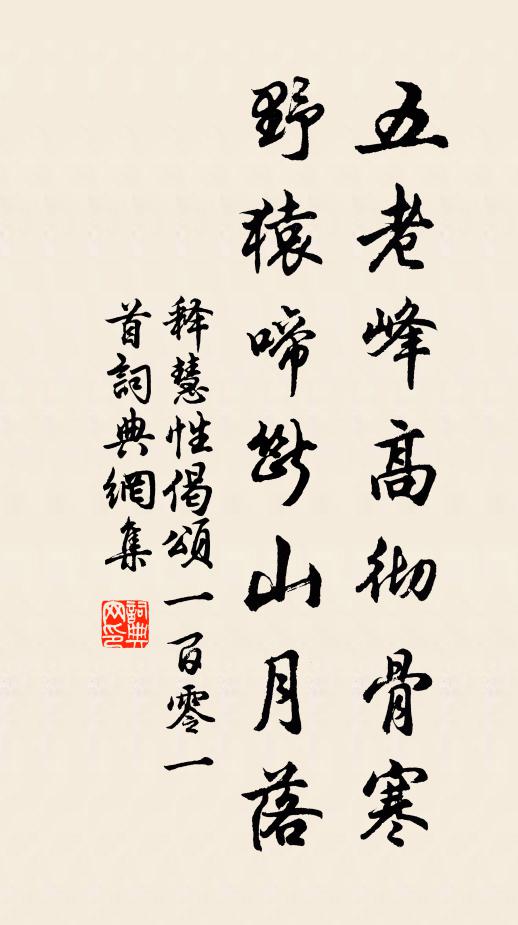 五老峰高彻骨寒
野猿啼斷山月落
释慧性偈頌一百零一
首詞典網集
詞典网印